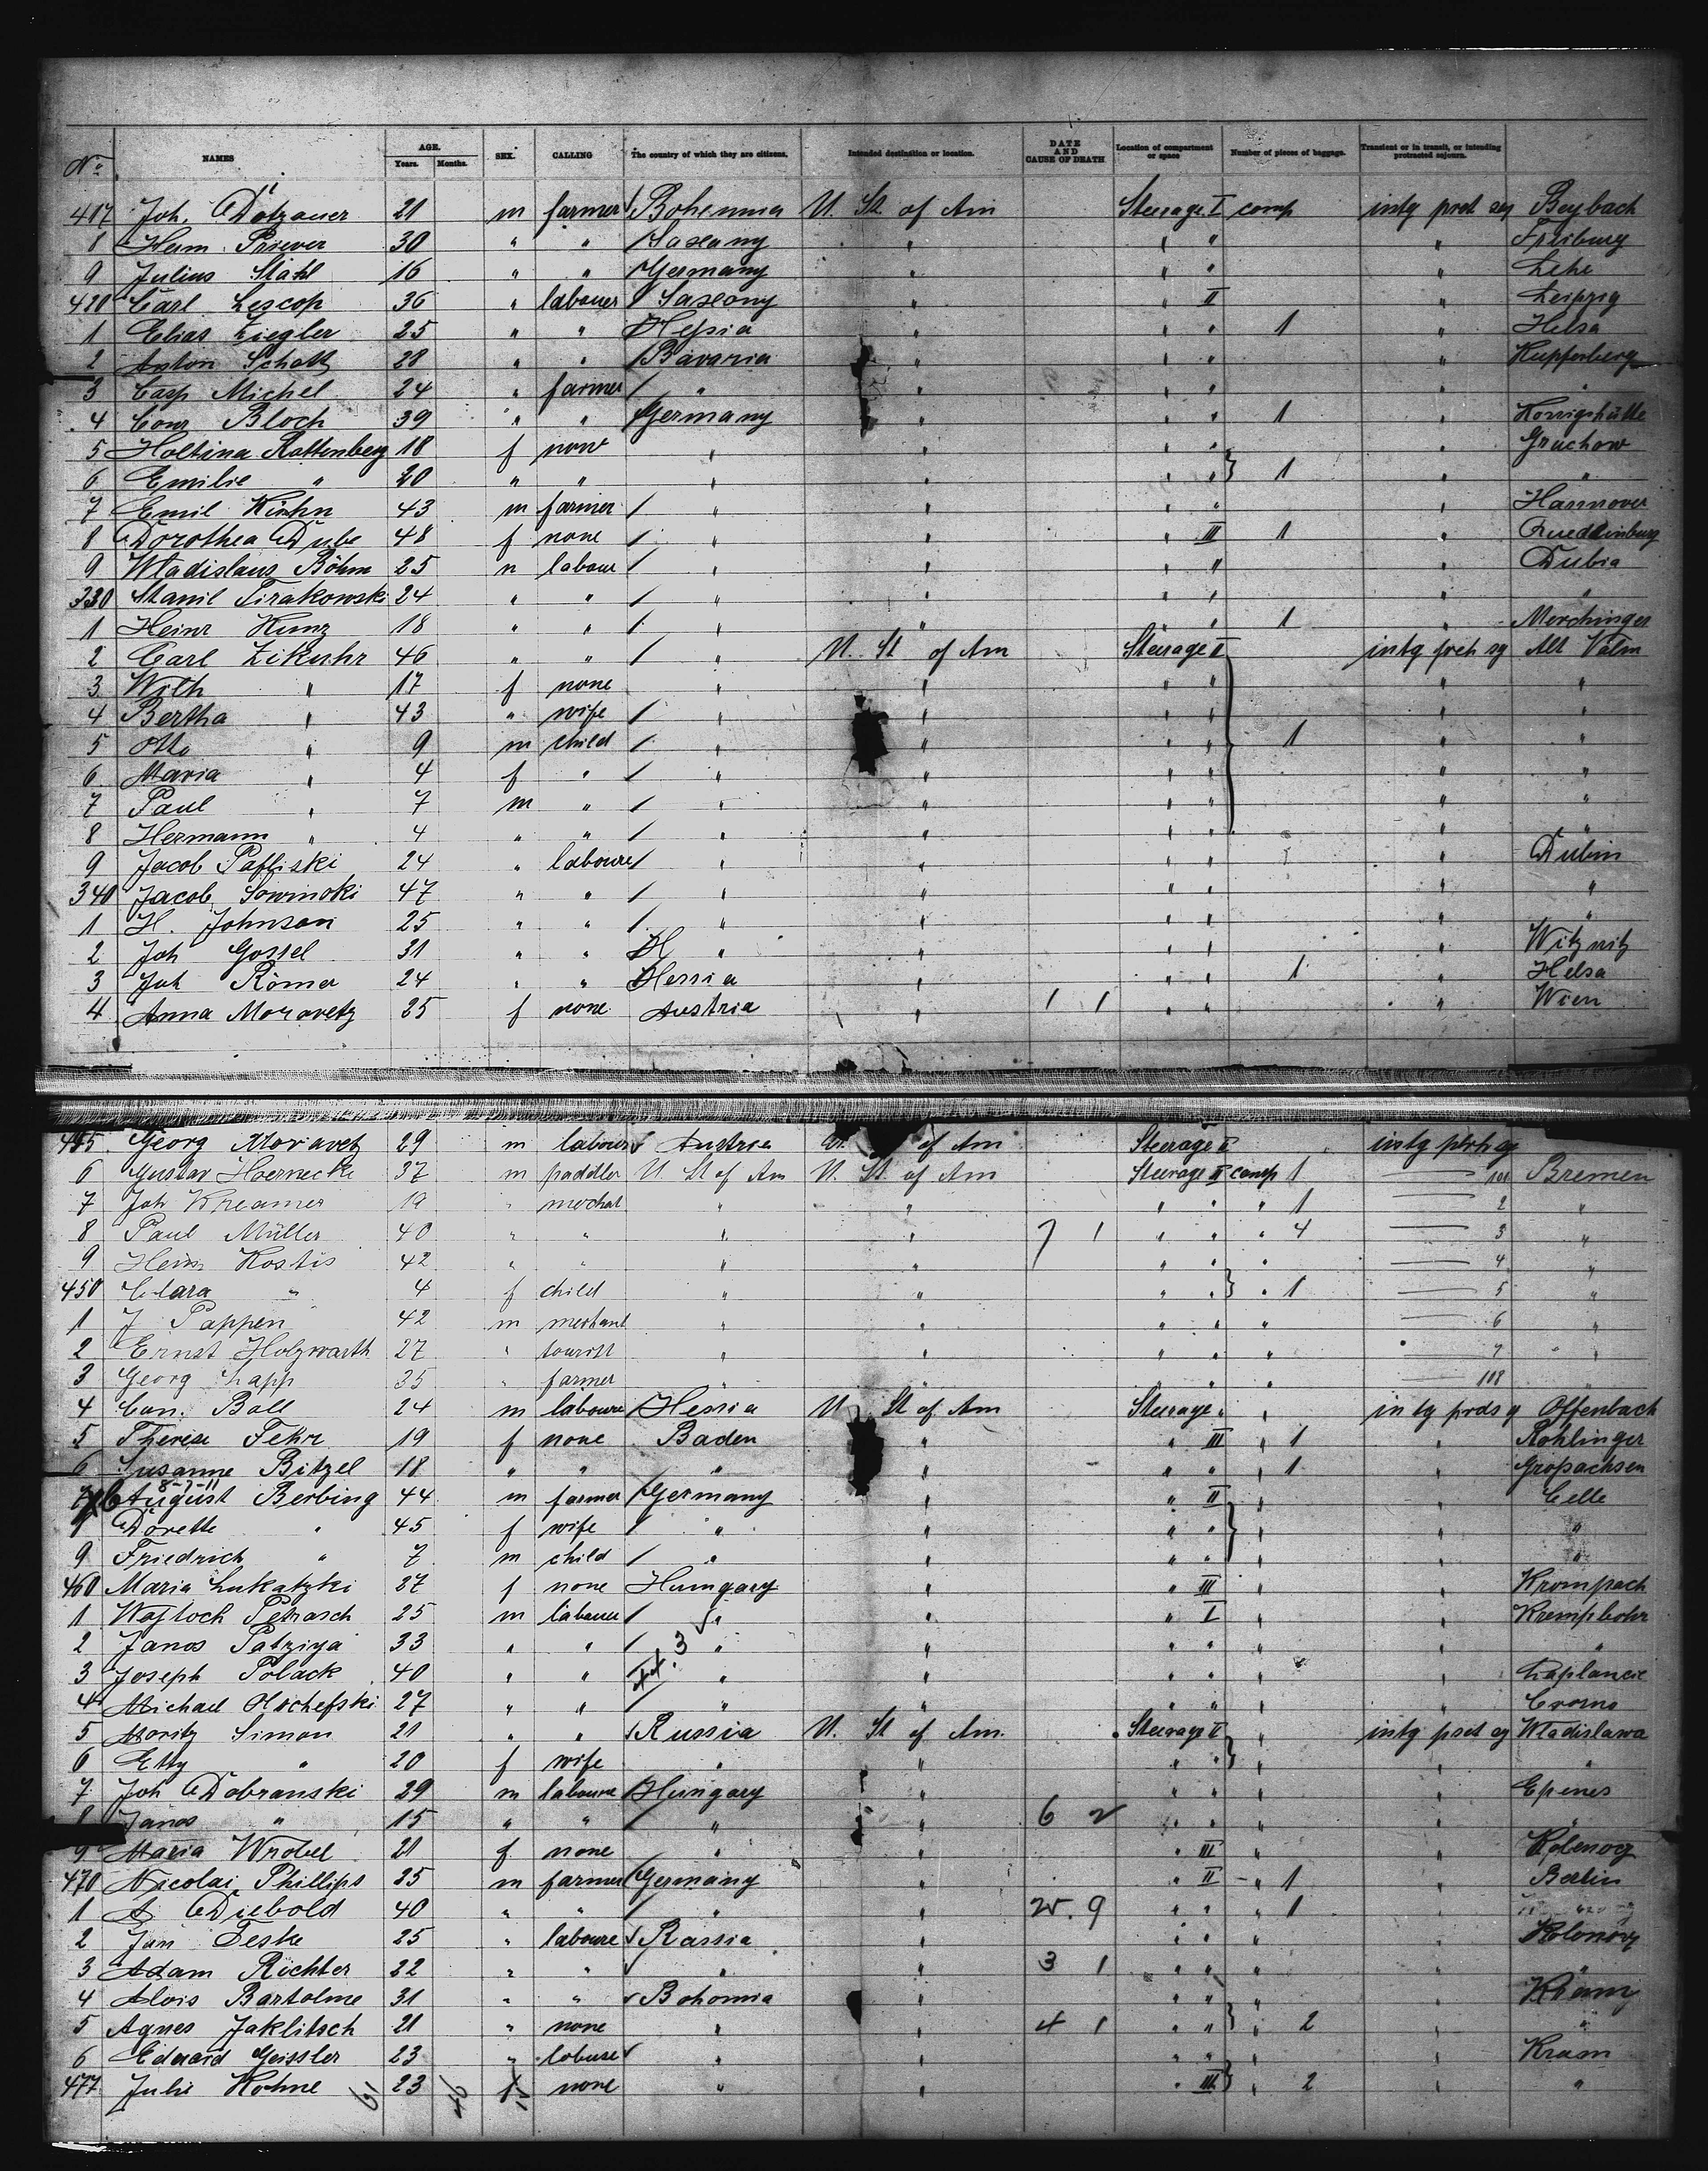 No NAMES AGE. Years. Months. SEX. CALLING The country of which they are citizens. Intended destination or location. DATE AND CAUSE OF DEATH Location of compartment or space Number of pieces of baggage. Transient or in transit, or intending protracted sojourn.
417 Joh. Dotzauer 21 m farmer Bohemia U. St. of Am Steerage I comp intg prot sej Beybach
8 Herm. Priever 30 " " Saxany " " " " Freiburg
9 Julius Stahl 16 " " Germany " " " " Lehe
420 Carl Lescop 36 " labouer Saxony " " II " Leipzig
1 Elias Ziegler 25 " " Hessia " " " 1 " Helsa
2 Anton Schatz 28 " " Bavaria " " " " Kupferberg
3 Casp Michel 24 " farmer " " " " " "
4 Conr Bloch 39 " " Germany " " " 1 " Königshütte
5 Holtina Rottenberg 18 f none " " " " " Gruchow
6 Emilie " 20 " " " " " " 1 " "
7 Emil Kuhn 43 m farmer " " " " " Hannover
8 Dorothea Dube 48 f none " " " III 1 " Quedlinburg
9 Wladislaus Böhm 25 m labour " " " " " Dubia
330 Stanil Tirakowski 24 " " " " " " " "
1 Heinr Kunz 18 " " " " " " 1 " Morchinger
2 Carl Zikuhr 46 " " " U. St of Am Steerage II intg prot sej Alt Valm
3 Wilh " 17 f none " " " " " "
4 Bertha " 43 " wife " " " " " "
5 Otto " 9 m child " " " " 1 " "
6 Maria " 4 f " " " " " " "
7 Paul " 7 m " " " " " " "
8 Hermann " 4 " " " " " " " "
9 Jacob Pafliski 24 " laboure " " " " " Dubin
340 Jacob Sowinski 47 " " " " " " " "
1 H. Johnson 25 " " " " " " " "
2 Joh Gossel 31 " " " " " " " Witznitz
3 Joh Römer 24 " " Hessia " " " 1 " Helsa
4 Anna Moravetz 25 f none Austria " 1 1 " " " Wien
445 Georg Moravetz 29 m labour Austria of Am Steerage II
6 Gustav Hoernecke 37 m paddler U. St of Am U. St. of Am Steerage II comp 1 101 Bremen
7 Joh Kreamer 19 " mechat " " " " " 1 2 "
8 Paul Müller 40 " " " " 7 1 " " " 4 3 "
9 Heinr Kostis 42 " " " " " " " 4 "
450 Clara " 4 f child " " " " " 1 5 "
1 J Pappen 42 m mechant " " " " " 6 "
2 Ernst Holzwarth 27 " tourist " " " " " 7 "
3 Georg Lapp 35 " farmer " " " " " 108 "
4 Con. Boll 24 m laboure Hessia U St of Am Steerage " " Offenbach
5 Therese Fehr 19 f none Baden " " III " 1 " Rohlinger
6 Susanne Bitzel 18 " " " " " " " 1 " Grossachsen
8-7-11
7 August Berbing 44 m farmer Germany " " II " " Celle
8 Dorette " 45 f wife " " " " " " "
9 Friedrich " 7 m child " " " " " " "
460 Maria Lukatzki 27 f none Hungary " " III " " Krompach
1 Wojtoch Petrasch 25 m labouer " " " I " "
2 Janos Patziya 33 " " " " " " " " "
3 Joseph Polack 40 " " " " " " " "
4 Michael 27 " " " " " " " "
5 Moritz Simon 21 " " Russia U. St of Am. Steerage II " intg prot sej Wladislawa
6 Etty " 20 f wife " " " " " " "
7 Joh Dobranski 29 m laboure Hungary " " " " " Epenes
8 Janos " 15 " " " " 6 2 " " " " "
9 Maria Wrobel 21 f none " " " III " "
470 Nicolai Phillips 35 m farmer Germany " " II " 1 " Berlin
1 A. Diebold 40 " " " " 25. 9 " " " 1 "
2 Jan Teske 25 " laboure Russia " " " " "
3 Adam Richter 22 " " " " 3 1 " " " " "
4 Alois Bartolme 31 " " Bohemia " " " " "
5 Agnes Jaklitsch 21 " none " " 4 1 " " " 2 " "
6 Edward Geissler 23 " laboure " " " " " " Kram
477 Julie Hohne 23 f none " " " III " 2 " "